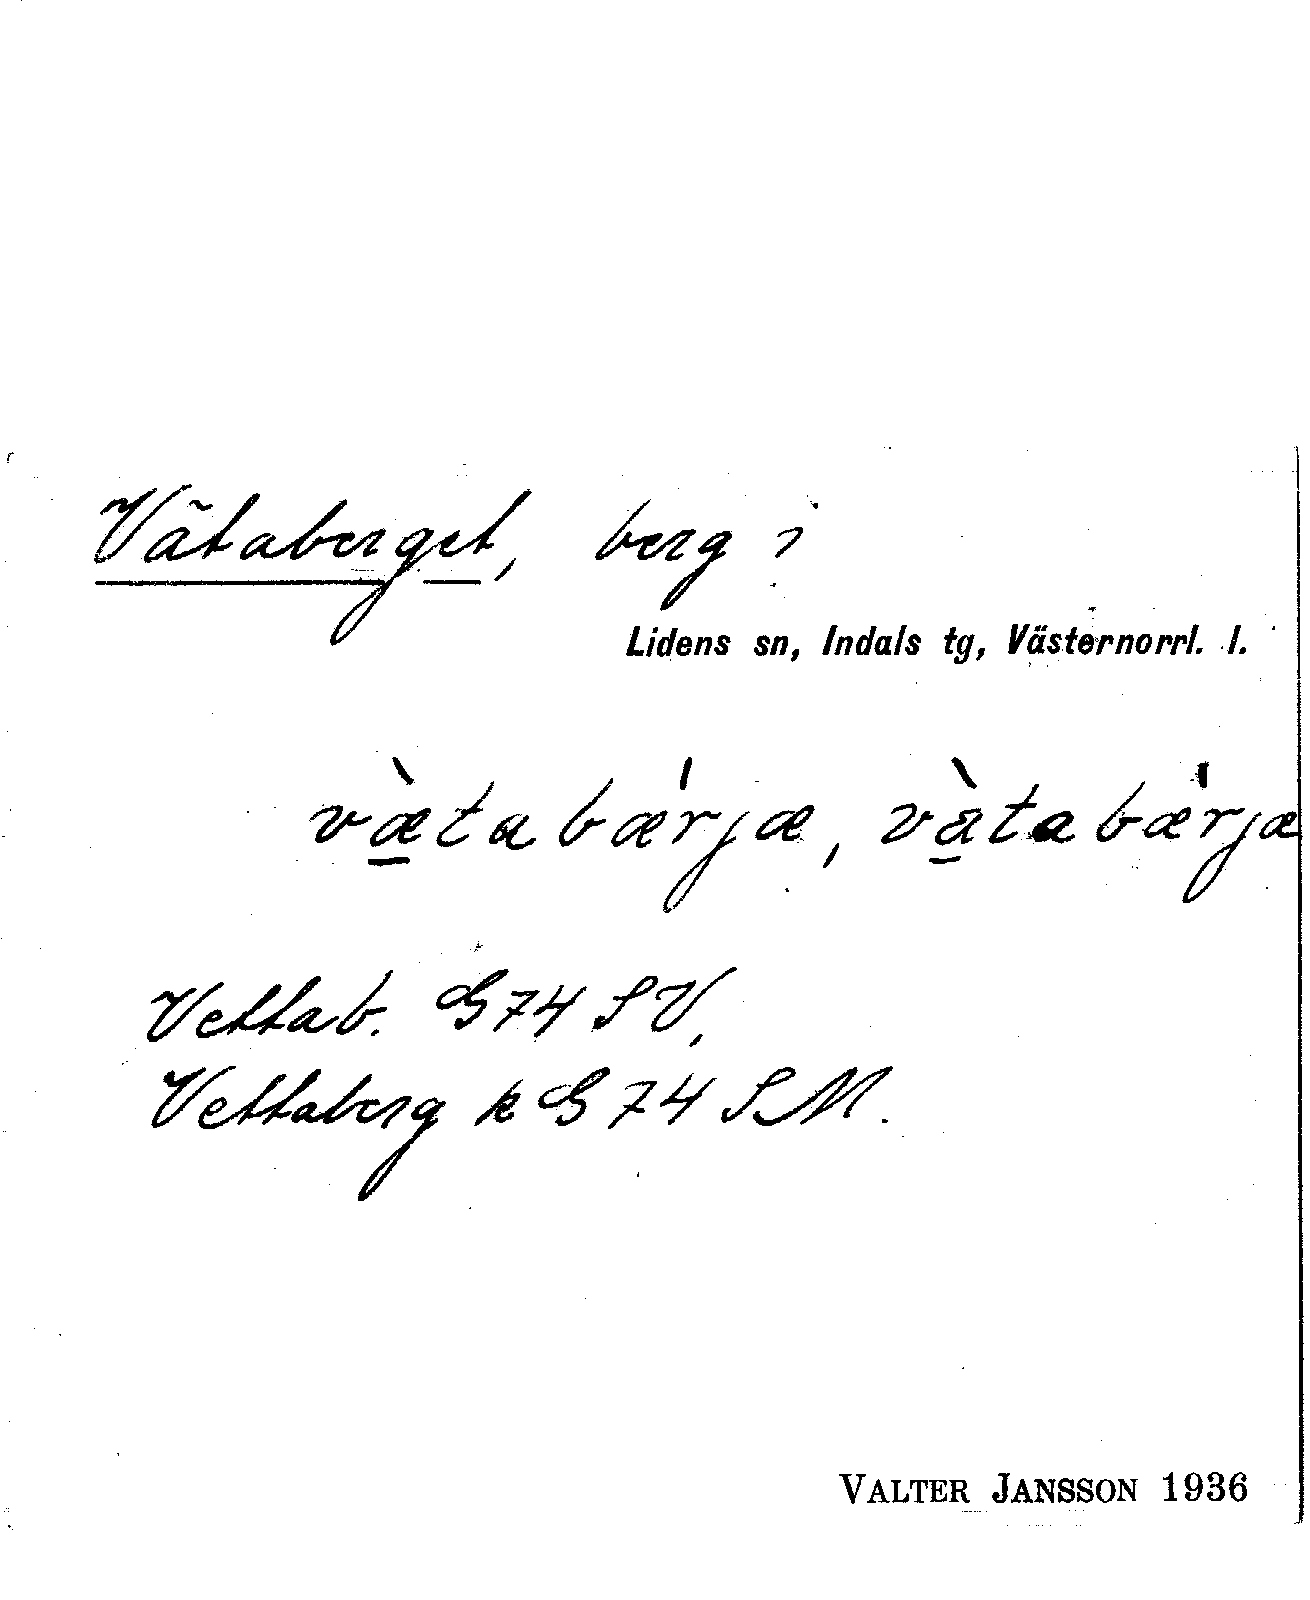 Vätaberget, berg i
Lidens sn, Indals tg, Västernorrl. l.
væ̀taba̍erjæ, vàtaba̍erjæ
Vettab. G74 SV,
Vettaberg k G74 SM.
VALTER JANSSON 1936